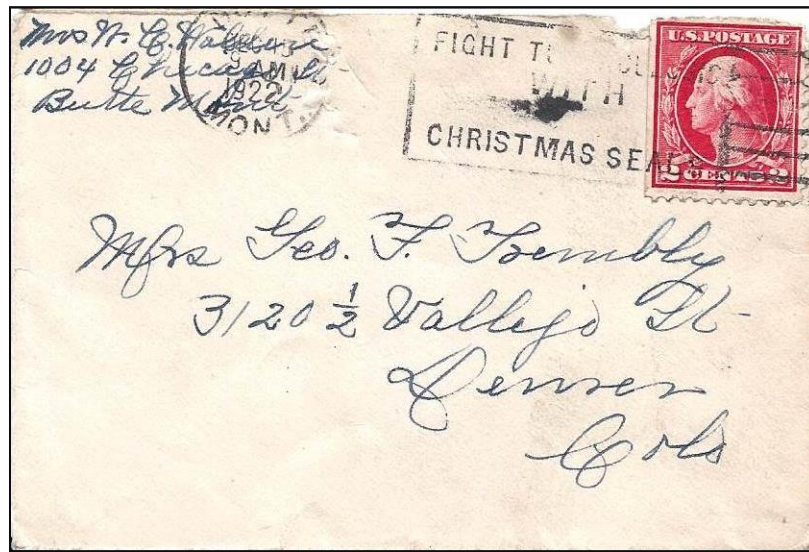 Mrs W. C.
1004 Chicago St
Butte Mont
9 AM
1922
MONT.
FIGHT
WITH
CHRISTMAS SEALS
U.S. POSTAGE
2 CENTS 2
Mrs Geo. F. Trembly
3120 1/2 Vallejo St
Denver
Colo